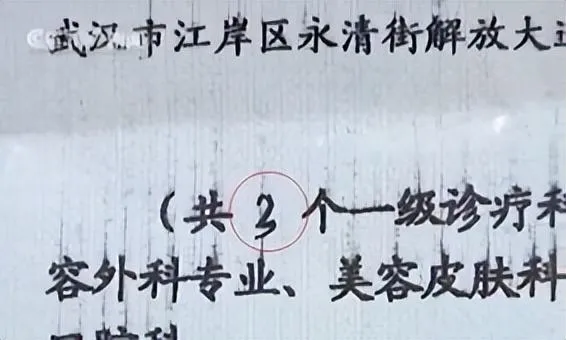 武汉市江岸区永清街解放大
（共3个一级诊疗科
容外科专业、美容皮肤科
口腔科